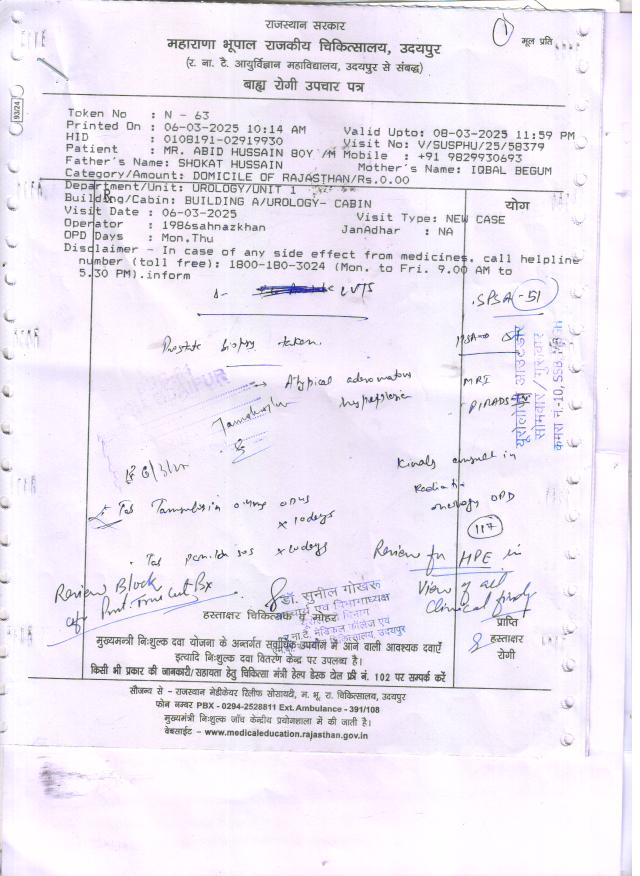 राजस्थान सरकार
1
मूल प्रति
महाराणा भूपाल राजकीय चिकित्सालय, उदयपुर
(र. ना. टै. आयुर्विज्ञान महाविद्यालय, उदयपुर से संबद्ध)
बाह्य रोगी उपचार पत्र
93/24
Token No : N - 63
Printed On : 06-03-2025 10:14 AM Valid Upto: 08-03-2025 11:59 PM
HID : 0108191-02919930 Visit No: V/SUSPHU/25/58379
Patient : MR. ABID HUSSAIN 80Y /M Mobile : +91 9829930693
Father's Name: SHOKAT HUSSAIN Mother's Name: IQBAL BEGUM
Category/Amount: DOMICILE OF RAJASTHAN/Rs.0.00
Department/Unit: UROLOGY/UNIT 1
योग
Building/Cabin: BUILDING A/UROLOGY- CABIN
Visit Date : 06-03-2025 Visit Type: NEW CASE
Operator : 1986sahnazkhan JanAdhar : NA
OPD Days : Mon,Thu
Disclaimer - In case of any side effect from medicines, call helpline
number (toll free): 1800-180-3024 (Mon. to Fri. 9.00 AM to
5.30 PM).inform
LUTS
SPSA - 51
Prostate biopsy taken.
Atypical adenomatous
hyperplasia
MRI
PIRADS-
यूरोलोजी आउटडोर
सोमवार / गुरूवार
कमरा नं.-10,
6/3/25
Kindly consult in
Radiation
oncology OPD
117
Tab Tamsulosin
x 10 days
Tab x 10 days
Review for HPE in
View of all
Clinical
Review Block
डॉ. सुनील गोखरू
हस्ताक्षर चिकित्सक व मोहर
प्राप्ति
हस्ताक्षर
रोगी
मुख्यमन्त्री निःशुल्क दवा योजना के अन्तर्गत सर्वाधिक उपयोग में आने वाली आवश्यक दवाएँ
इत्यादि निःशुल्क दवा वितरण केन्द्र पर उपलब्ध है।
किसी भी प्रकार की जानकारी/सहायता हेतु चिकित्सा मंत्री हेल्प डेस्क टोल फ्री नं. 102 पर सम्पर्क करें
सौजन्य से - राजस्थान मेडीकेयर रिलीफ सोसायटी, म. भू. रा. चिकित्सालय, उदयपुर
फोन नम्बर PBX - 0294-2528811 Ext. Ambulance - 391/108
मुख्यमन्त्री निःशुल्क जाँच केन्द्रीय प्रयोगशाला में की जाती है।
वेबसाईट - www.medicaleducation.rajasthan.gov.in